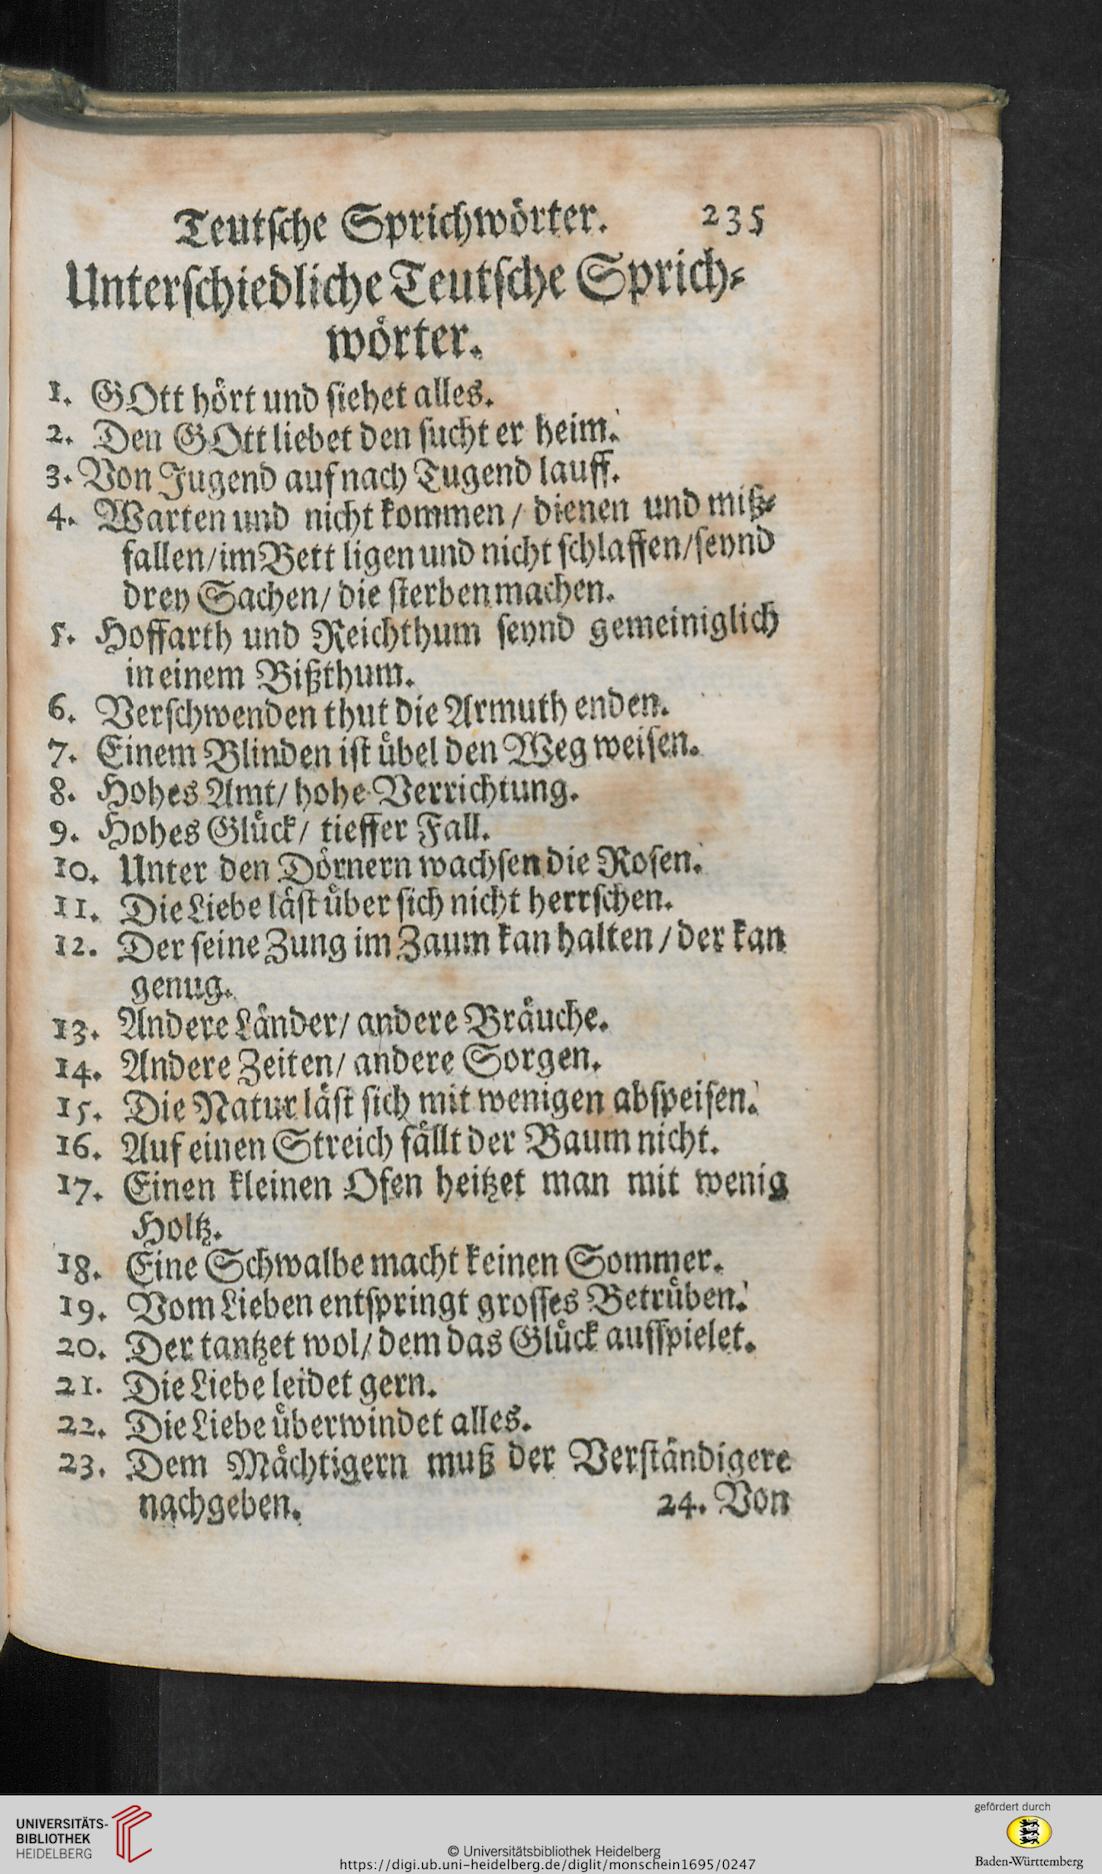 Teutſche Sprichwörter. 235
Unterſchiedliche Teutſche Sprich⸗
wörter.
1. GOtt hört und ſiehet alles.
2. Den GOtt liebet den ſucht er heim.
3. Von Jugend auf nach Tugend lauff.
4. Warten und nicht kommen / dienen und miß⸗
fallen / im Bett ligen und nicht ſchlaffen / ſeynd
drey Sachen / die ſterben machen.
5. Hoffarth und Reichthum ſeynd gemeiniglich
in einem Bißthum.
6. Verſchwenden thut die Armuth enden.
7. Einem Blinden iſt übel den Weg weiſen.
8. Hohes Amt / hohe Verrichtung.
9. Hohes Glück / tieffer Fall.
10. Unter den Dörnern wachſen die Roſen.
11. Die Liebe läſt über ſich nicht herrſchen.
12. Der ſeine Zung im Zaum kan halten / der kan
genug.
13. Andere Länder / andere Bräuche.
14. Andere Zeiten / andere Sorgen.
15. Die Natur läſt ſich mit wenigen abſpeiſen.
16. Auf einen Streich fällt der Baum nicht.
17. Einen kleinen Ofen heitzet man mit wenig
Holtz.
18. Eine Schwalbe macht keinen Sommer.
19. Vom Lieben entſpringt groſſes Betrüben.
20. Der tantzet wol / dem das Glück aufſpielet.
21. Die Liebe leidet gern.
22. Die Liebe überwindet alles.
23. Dem Mächtigern muß der Verſtändigere
nachgeben. 24. Von
UNIVERSITÄTS-
BIBLIOTHEK
HEIDELBERG
© Universitätsbibliothek Heidelberg
https://digi.ub.uni-heidelberg.de/diglit/monschein1695/0247
gefördert durch
Baden-Württemberg